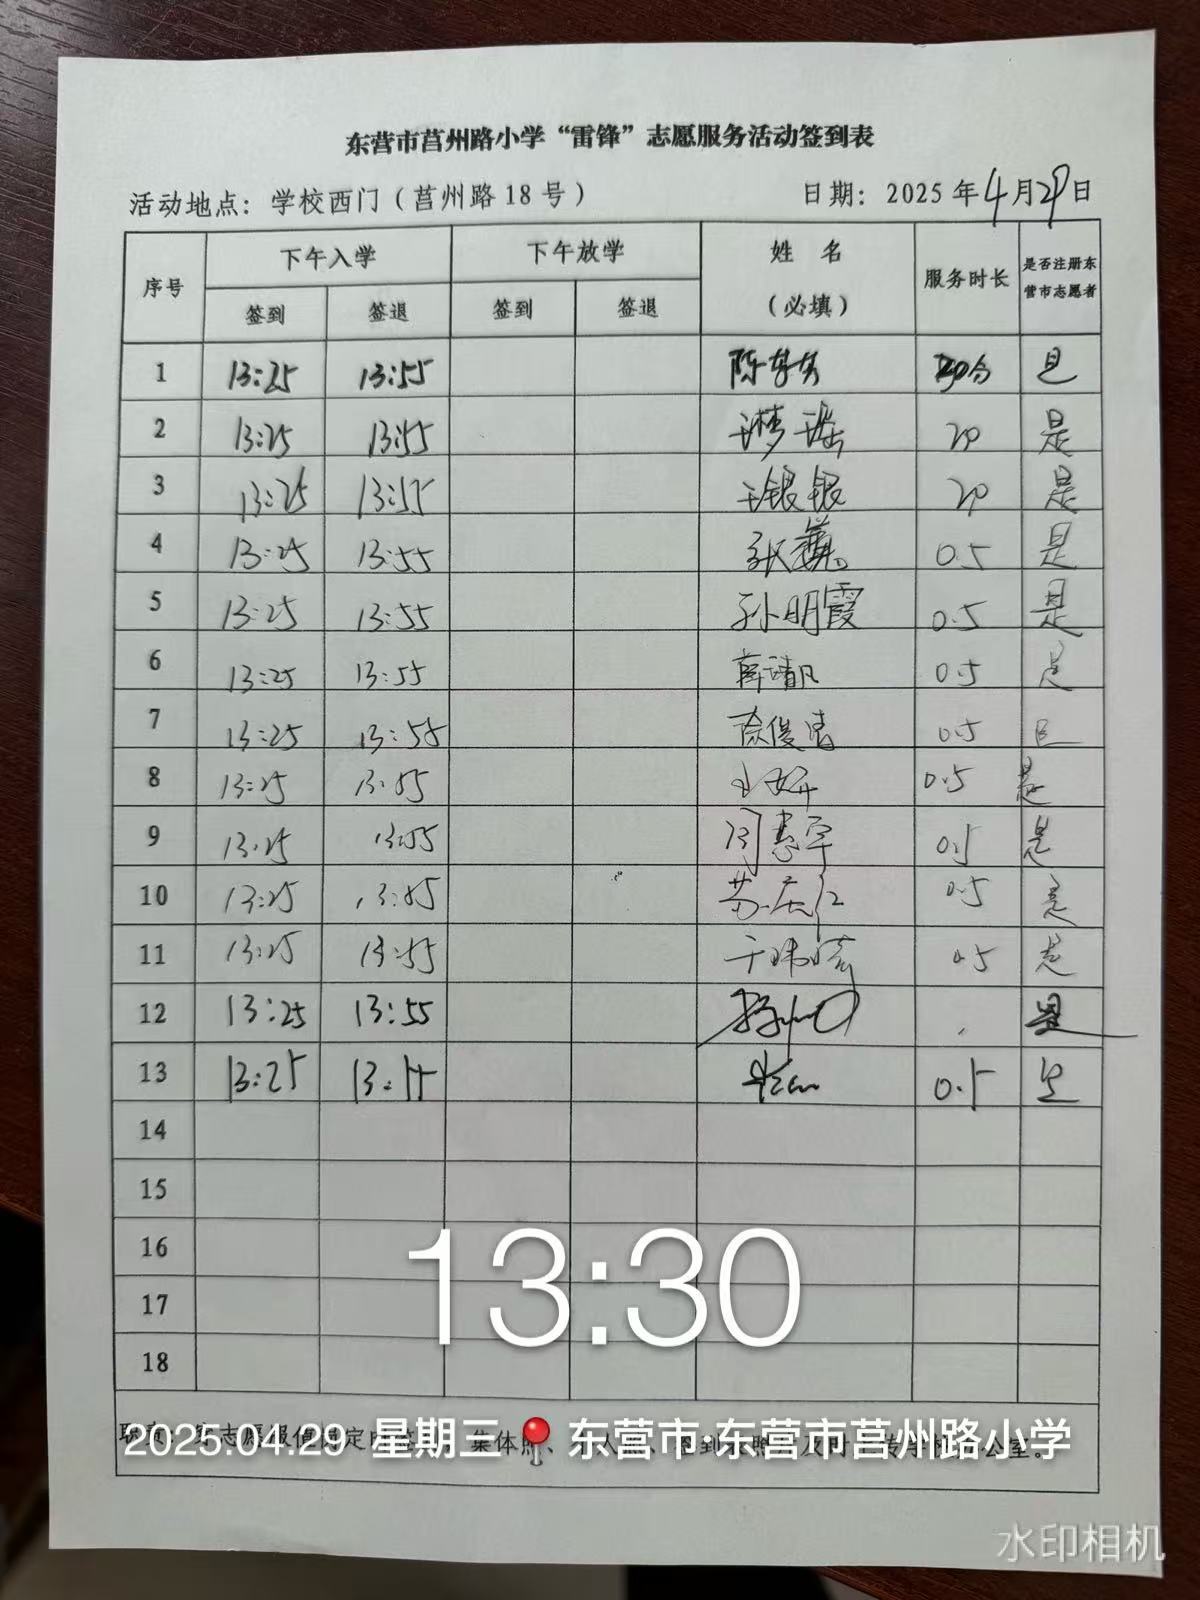 东营市莒州路小学“雷锋”志愿服务活动签到表
活动地点：学校西门（莒州路18号） 日期：2025年4月29日
序号 下午入学 下午放学 姓名（必填） 服务时长 是否注册东营市志愿者
签到 签退 签到 签退
1 13:25 13:55 是
2 13:25 13:55 王梦瑶 20 是
3 13:25 13:55 王银银 20 是
4 13:25 13:55 张巍 0.5 是
5 13:25 13:55 孙明霞 0.5 是
6 13:25 13:55 薛靖凡 0.5 是
7 13:25 13:55 徐俊 0.5 是
8 13:25 13:55 王妍 0.5 是
9 13:25 13:55 闫惠军 0.5 是
10 13:25 13:55 0.5 是
11 13:25 13:55 0.5 是
12 13:25 13:55 是
13 13:25 13:55 0.5 是
14
15
16
17
18
13:30
2025.04.29 星期三 东营市·东营市莒州路小学
水印相机